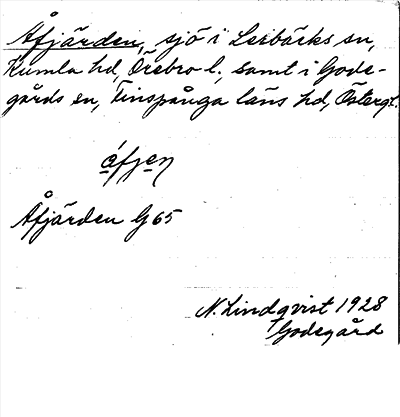 Åfjärden, sjö i Lerbäcks sn,
Kumla hd, Örebro l., samt i Gode-
gårds sn, Finspånga läns hd, Östergl.
áfjen
Åfjärden G 65
N. Lindqvist 1928
Godegård